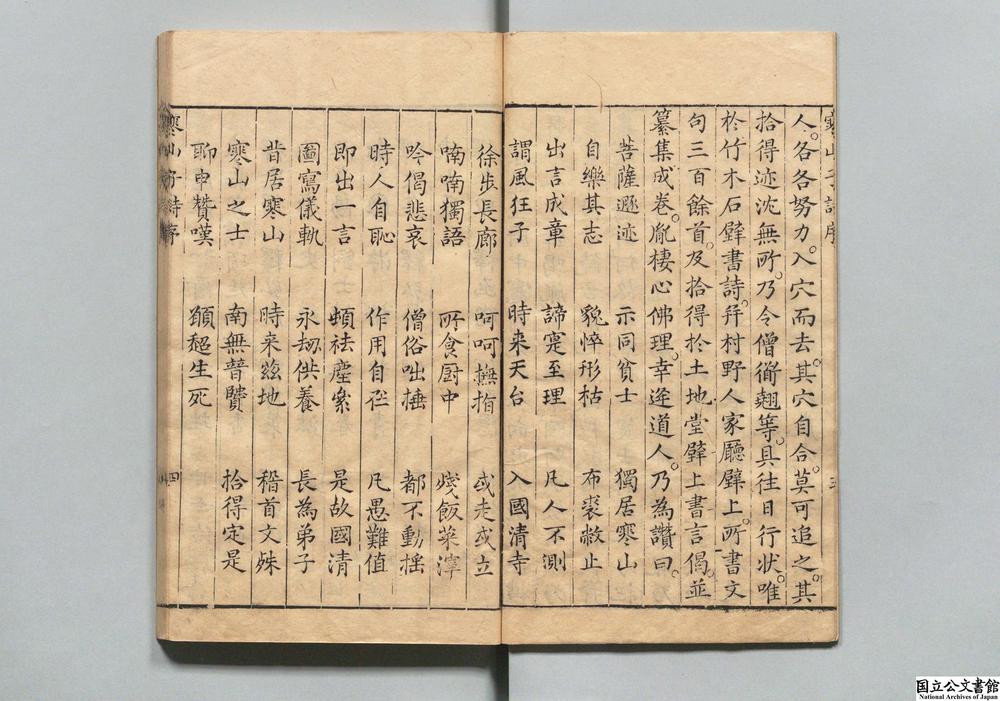 寒山子詩序 三
人。各各努力。入穴而去。其穴自合。莫可追之。其
拾得迹沈無所。乃令僧衜翹等。具往日行狀。唯
於竹木石壁書詩。幷村野人家廳壁上。所書文
句三百餘首。及拾得於土地堂壁上書言偈。並
纂集成卷。胤棲心佛理。幸逢道人。乃為讚曰。
菩薩遯迹 示同貧士 獨居寒山
自樂其志 貌悴形枯 布裘敝止
出言成章 諦寔至理 凡人不測
謂風狂子 時来天台 入國清寺
徐步長廊 呵呵撫指 或走或立
喃喃獨語 所食厨中 殘飯菜滓
吟偈悲哀 僧俗咄捶 都不動搖
時人自恥 作用自在 凡愚難值
即出一言 頓祛塵累 是故國清
圖寫儀軌 永劫供養 長為弟子
昔居寒山 時来兹地 稽首文殊
寒山之士 南無普賢 拾得定是
聊申贊嘆 願超生死
寒山子詩序 四
国立公文書館
National Archives of Japan